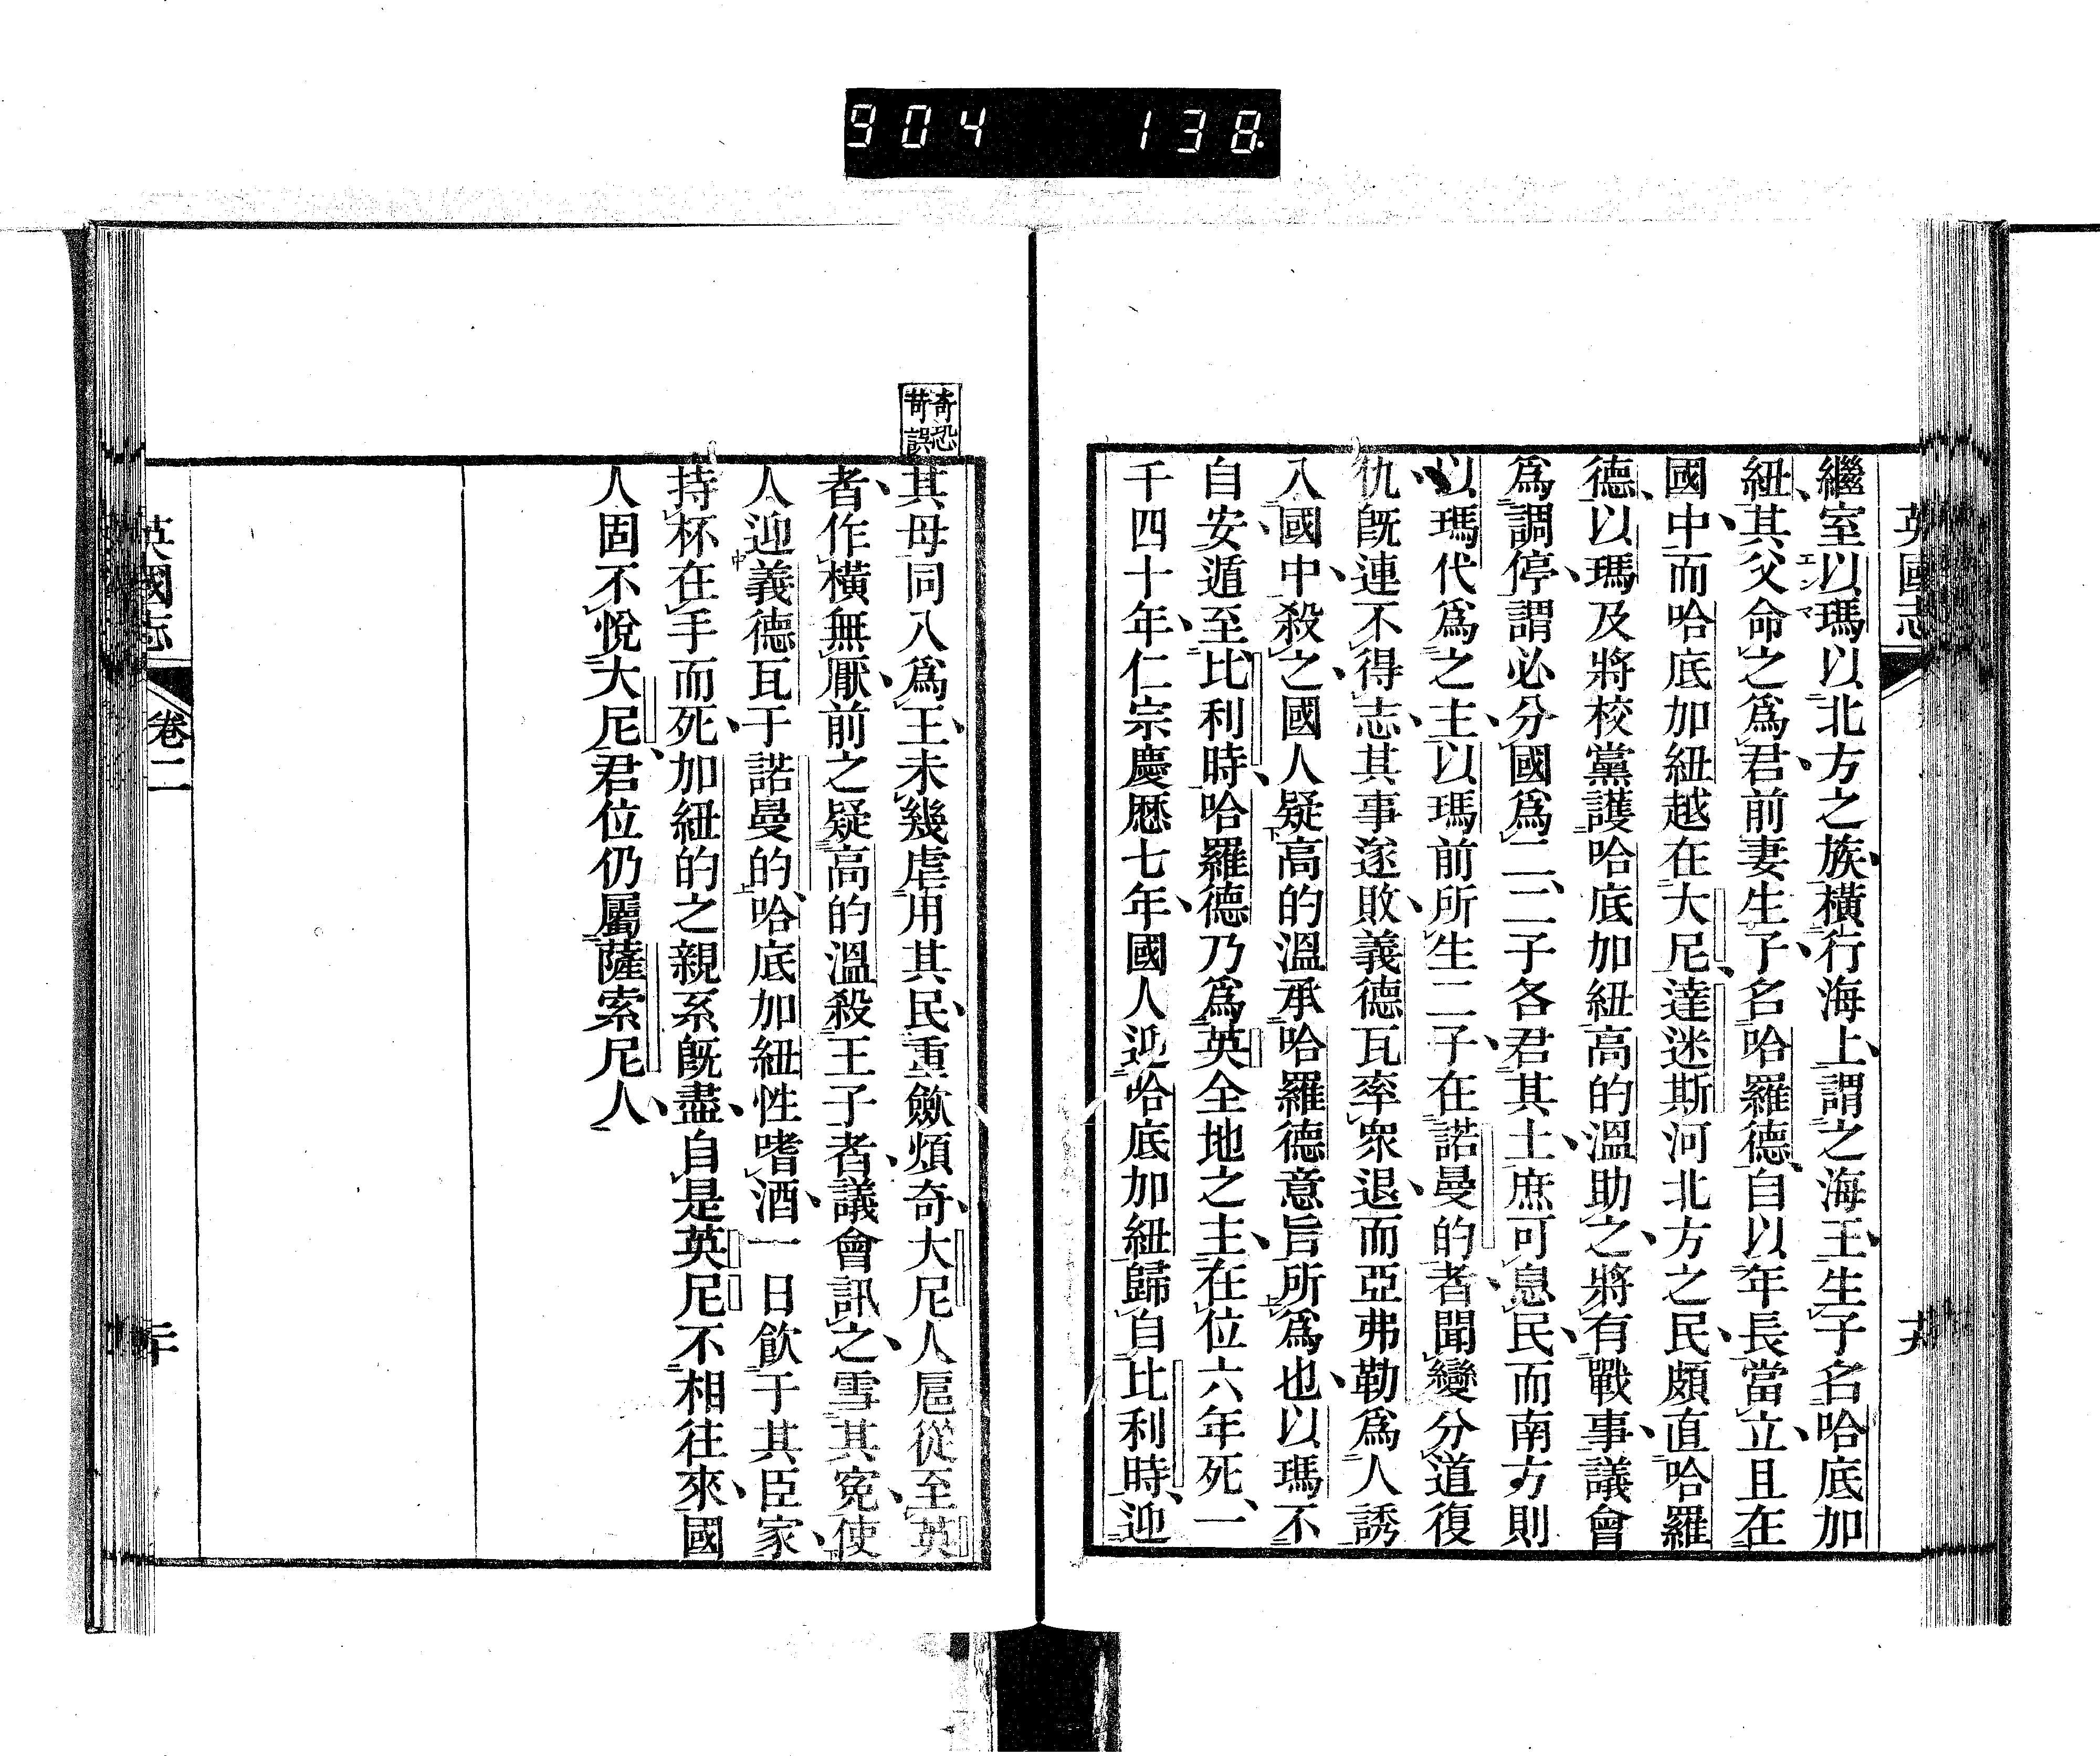 904 138.
英國志
繼室以瑪以北方之族橫行海上謂之海王生子名哈底加
エンマ
紐其父命之爲君前妻生子名哈羅德自以年長當立且在
國中而哈底加紐越在大尼達迷斯河北方之民頗直哈羅
德以瑪及將校黨護哈底加紐高的溫助之將有戰事議會
爲調停謂必分國爲二二子各君其土庶可息民而南方則
以瑪代爲之主以瑪前所生二子在諾曼的者聞變分道復
仇旣連不得志其事遂敗義德瓦率衆退而亞弗勒爲人誘
入國中殺之國人疑高的溫承哈羅德意旨所爲也以瑪不
自安遁至比利時哈羅德乃爲英全地之主在位六年死一
千四十年仁宗慶歷七年國人迎哈底加紐歸自比利時迎
奇恐
苛誤
其母同入爲王未幾虐用其民重斂煩奇大尼人扈從至英
者作橫無厭前之疑高的溫殺王子者議會訊之雪其寃使
人迎義德瓦于諾曼的哈底加紐性嗜酒一日飮于其臣家
持杯在手而死加紐的之親系旣盡自是英尼不相往來國
人固不悅大尼君位仍屬薩索尼人
英國志
卷二